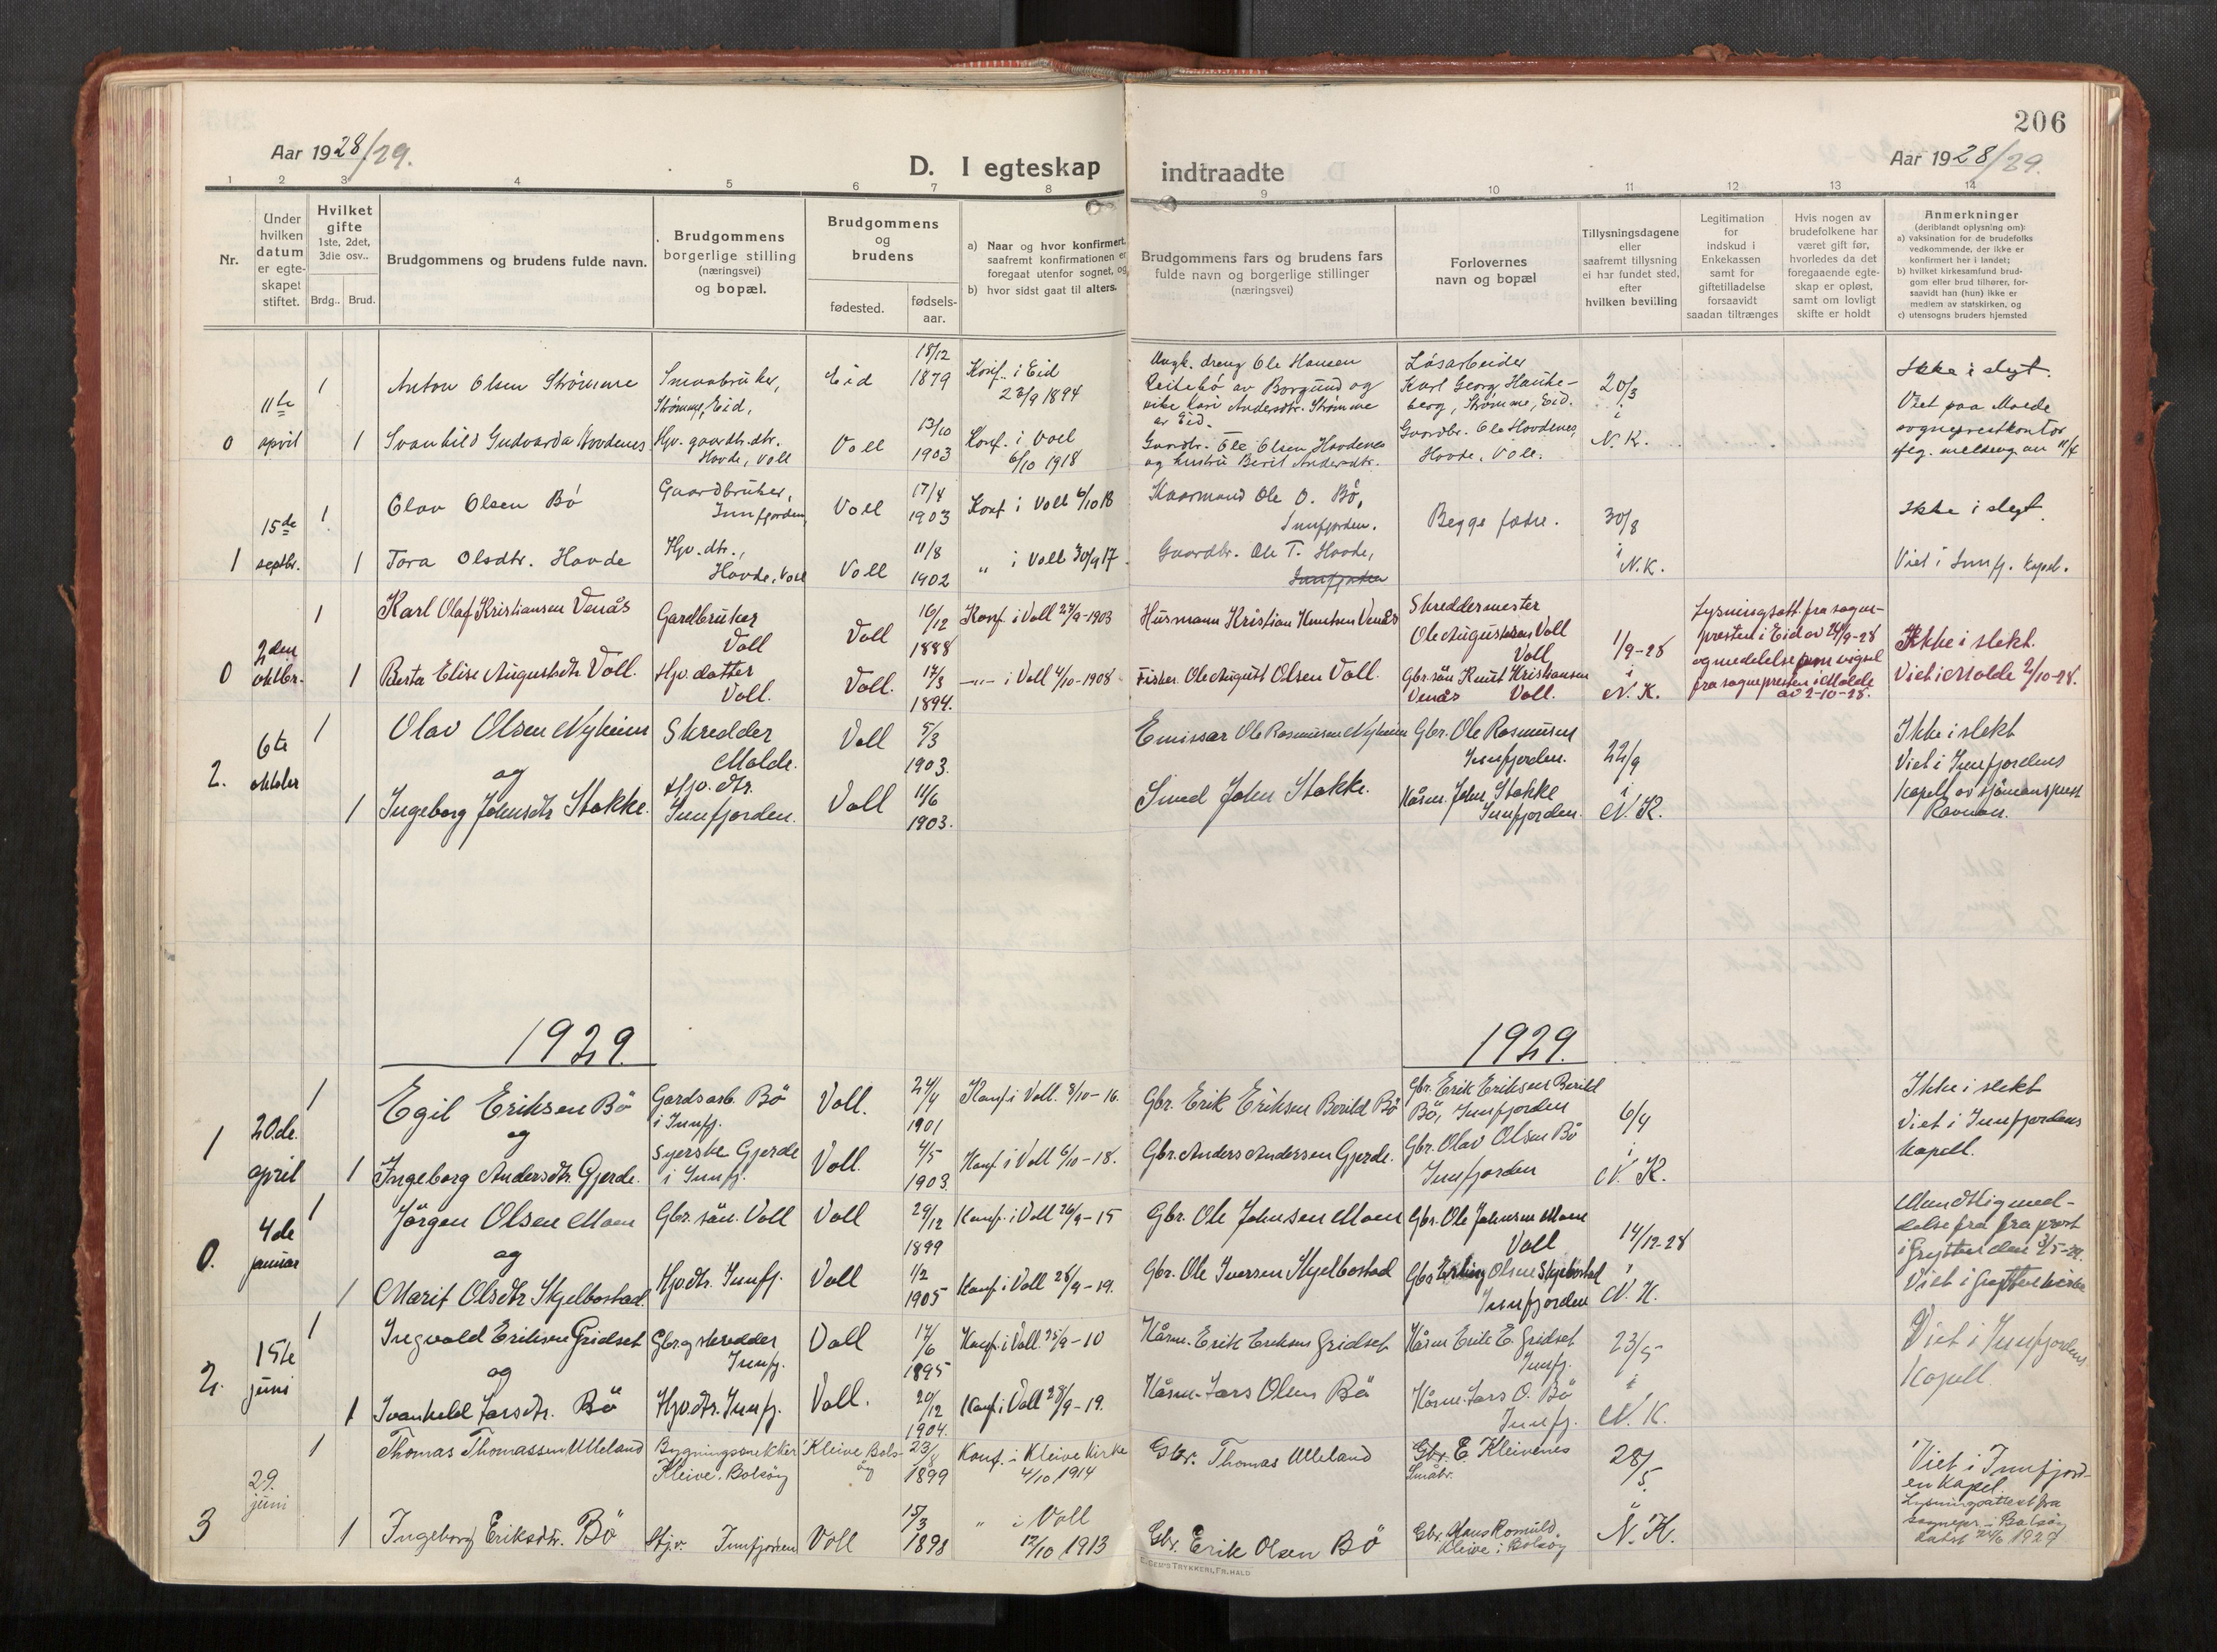 206
Aar 1928/29.
D. I egteskap indtraadte
Aar 1928/29.
1 2 3 4 5 6 7 8 9 10 11 12 13 14
Nr.
Under hvilken datum er egteskapet stiftet.
Hvilket gifte 1ste, 2det, 3die osv..
Brdg.. Brud.
Brudgommens og brudens fulde navn.
Brudgommens borgerlige stilling (næringsvei) og bopæl.
Brudgommens og brudens
fødested. fødselsaar.
a) Naar og hvor konfirmert, saafremt konfirmationen er foregaat utenfor sognet, og
b) hvor sidst gaat til alters.
Brudgommens fars og brudens fars fulde navn og borgerlige stillinger (næringsvei)
Forlovernes navn og bopæl
Tillysningsdagene eller saafremt tillysning ei har fundet sted, efter hvilken bevilling
Legitimation for indskud i Enkekassen samt for giftetilladelse forsaavidt saadan tiltrænges
Hvis nogen av brudefolkene har været gift før, hvorledes da det foregaaende egteskap er opløst, samt om lovligt skifte er holdt
Anmerkninger (deriblandt oplysning om):
a) vaksination for de brudefolks vedkommende, der ikke er konfirmert her i landet;
b) hvilket kirkesamfund brudgom eller brud tilhører, forsaavidt han (hun) ikke er medlem av statskirken, og
c) utensogns bruders hjemsted
0 11te april
1 Anton Olsen Strømme Smaabruker, Strømme, Eid, Eid 18/12 1879 Konf. i Eid 23/9 1894
Ungk. dreng Ole Hansen Reitebø av Borgund og pike Kari Andersdtr. Strømme av Eid.
Løsarbeider Karl Georg Haukeberg, Strømme, Eid. 20/3 i
Ikke i slegt.
Viet paa Molde sogneprestkontor
1 Svanhild Gudvarda Hovdenes Hjv. gaardbr.dtr. Hovde, Voll Voll 13/10 1903 Konf. i Voll 6/10 1918
Gaardbr. Ole Olsen Hovdenes og hustru Berit Andersdtr.
Gaardbr. Ole Hovdenes, Hovde, Voll. N. K.
flg. melding av 11/4
1 15de septbr.
1 Olav Olsen Bö Gaardbruker, Innfjorden, Voll 17/4 1903 Konf i Voll 6/10 18
Kaarmand Ole O. Bö, Innfjorden. Begge fædre. 30/8 i
Ikke i slegt
1 Tora Olsdtr. Hovde Hjv. dtr., Hovde, Voll Voll 11/8 1902 " i Voll 30/9 17.
Gaardbr. Ole T. Hovde, Innfjorden N.K.
Viet i Innfj. kapel.
0 2den oktbr.
1 Karl Olaf Kristiansen Venås Gardbruker Voll Voll 16/12 1888 Konf. i Voll 27/9-1903
Husmann Kristian Knutsen Venås Skreddermester Ole Augustsen Voll Voll 1/9-28 i
Lysningsatt. fra sognepresten i Eid av 24/9-28 og meddelelse om vigsel fra sognepresten i Molde av 2-10-28.
Ikke i slekt.
1 Berta Elise Augustsdtr Voll. Hjv. datter Voll. Voll. 17/3 1894. -"- i Voll 4/10-1908
Fisker Ole August Olsen Voll. Gbr. sön Knut Kristiansen Venås Voll. N. K.
Viet i Molde 2/10-28.
2. 6te oktober
1 Olav Olsen Nyheim Skredder Molde. Voll 5/3 1903.
og
Emissær Ole Rasmussen Nyheim Gbr. Ole Rasmussen Innfjorden. 22/9 i
Ikke i slekt
Viet i Innfjordens kapell av sjömansprest
1 Ingeborg Johnsdtr Stokke. Hjv. dtr. Innfjorden. Voll 11/6 1903.
Smed John Stokke. Kårm. John Stokke Innfjorden. N. K.
1929. 1929.
1 20de april
1 Egil Eriksen Bö Gardsarb. Bö i Innfj. Voll. 24/4 1901 Konf i Voll. 8/10-16.
og
Gbr. Erik Eriksen Berild Bö Gbr. Erik Eriksen Berild Bö, Innfjorden 6/4 i
Ikke i slekt
Viet i Innfjordens kapell.
1 Ingeborg Andersdtr. Gjerde. Syerske Gjerde i Innfj. Voll. 4/5 1903. Konf. i Voll 6/10-18.
Gbr. Anders Andersen Gjerde. Gbr. Olav Olsen Bö Innfjorden N. K.
0. 4de januar
1 Jörgen Olsen Moen Gbr. sön. Voll Voll 29/12 1899 Konf. i Voll 26/9-15
og
Gbr. Ole Johnsen Moen Gbr. Ole Johnsen Moen Voll 14/12-28 i
Mundtlig meddelelse fra fra prest i Grytten den 3/5-29.
Viet i Grytten kirke
1 Marit Olsdtr Skjelbostad. Hjv.dtr. Innfj. Voll 1/2 1905 Konf. i Voll 28/9-19.
Gbr. Ole Iversen Skjelbostad Gbr Erling Olsen Skjelbostad Innfjorden N. K.
2. 15de juni
1 Ingvald Eriksen Gridset Gbr. og skredder Innfj. Voll 14/6 1895 Konf. i Voll 25/9-10
og
Kårm. Erik Eriksen Gridset Kårm Erik E. Gridset Innfj. 23/5 i
Viet i Innfjordens Kapell.
1 Svanhild Larsdtr. Bö Hjv.dtr. Innfj. Voll. 20/12 1904. Konf. i Voll 28/9-19.
Kårm. Lars Olsen Bö Kårm. Lars O. Bö Innfj. N. K.
3 29. juni
1 Thomas Thomassen Ulleland Bygningssnekker Kleive. Bolsöy Kleive Bolsöy 23/8 1899 Konf. i Kleive Kirke 4/10 1914
Gbr. Thomas Ulleland Gbr. E. Kleivenes Småbr. 28/5. i
Viet i Innfjorden Kapel.
Lysningsattest fra sognepr. i Bolsöy
1 Ingeborg Eriksdtr. Bö Hjv. Innfjorden Voll 15/3 1898 " i Voll 12/10 1913
Gbr. Erik Olsen Bö Gbr. Hans Romuld. Kleive i Bolsöy N. K.
TRYKKERI, FR. HALD